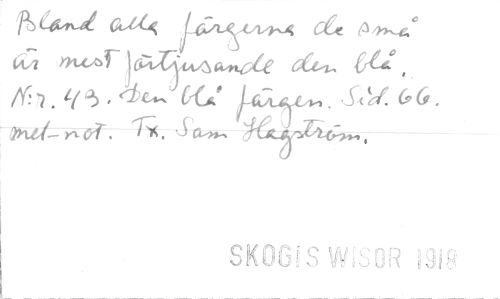 Bland alla färgerna de små
är mest förtjusande den blå.
N:r. 43. Den blå färgen. Sid. 66.
met-not. Tx. Sam Hagström.
SKOGIS WISOR 1918